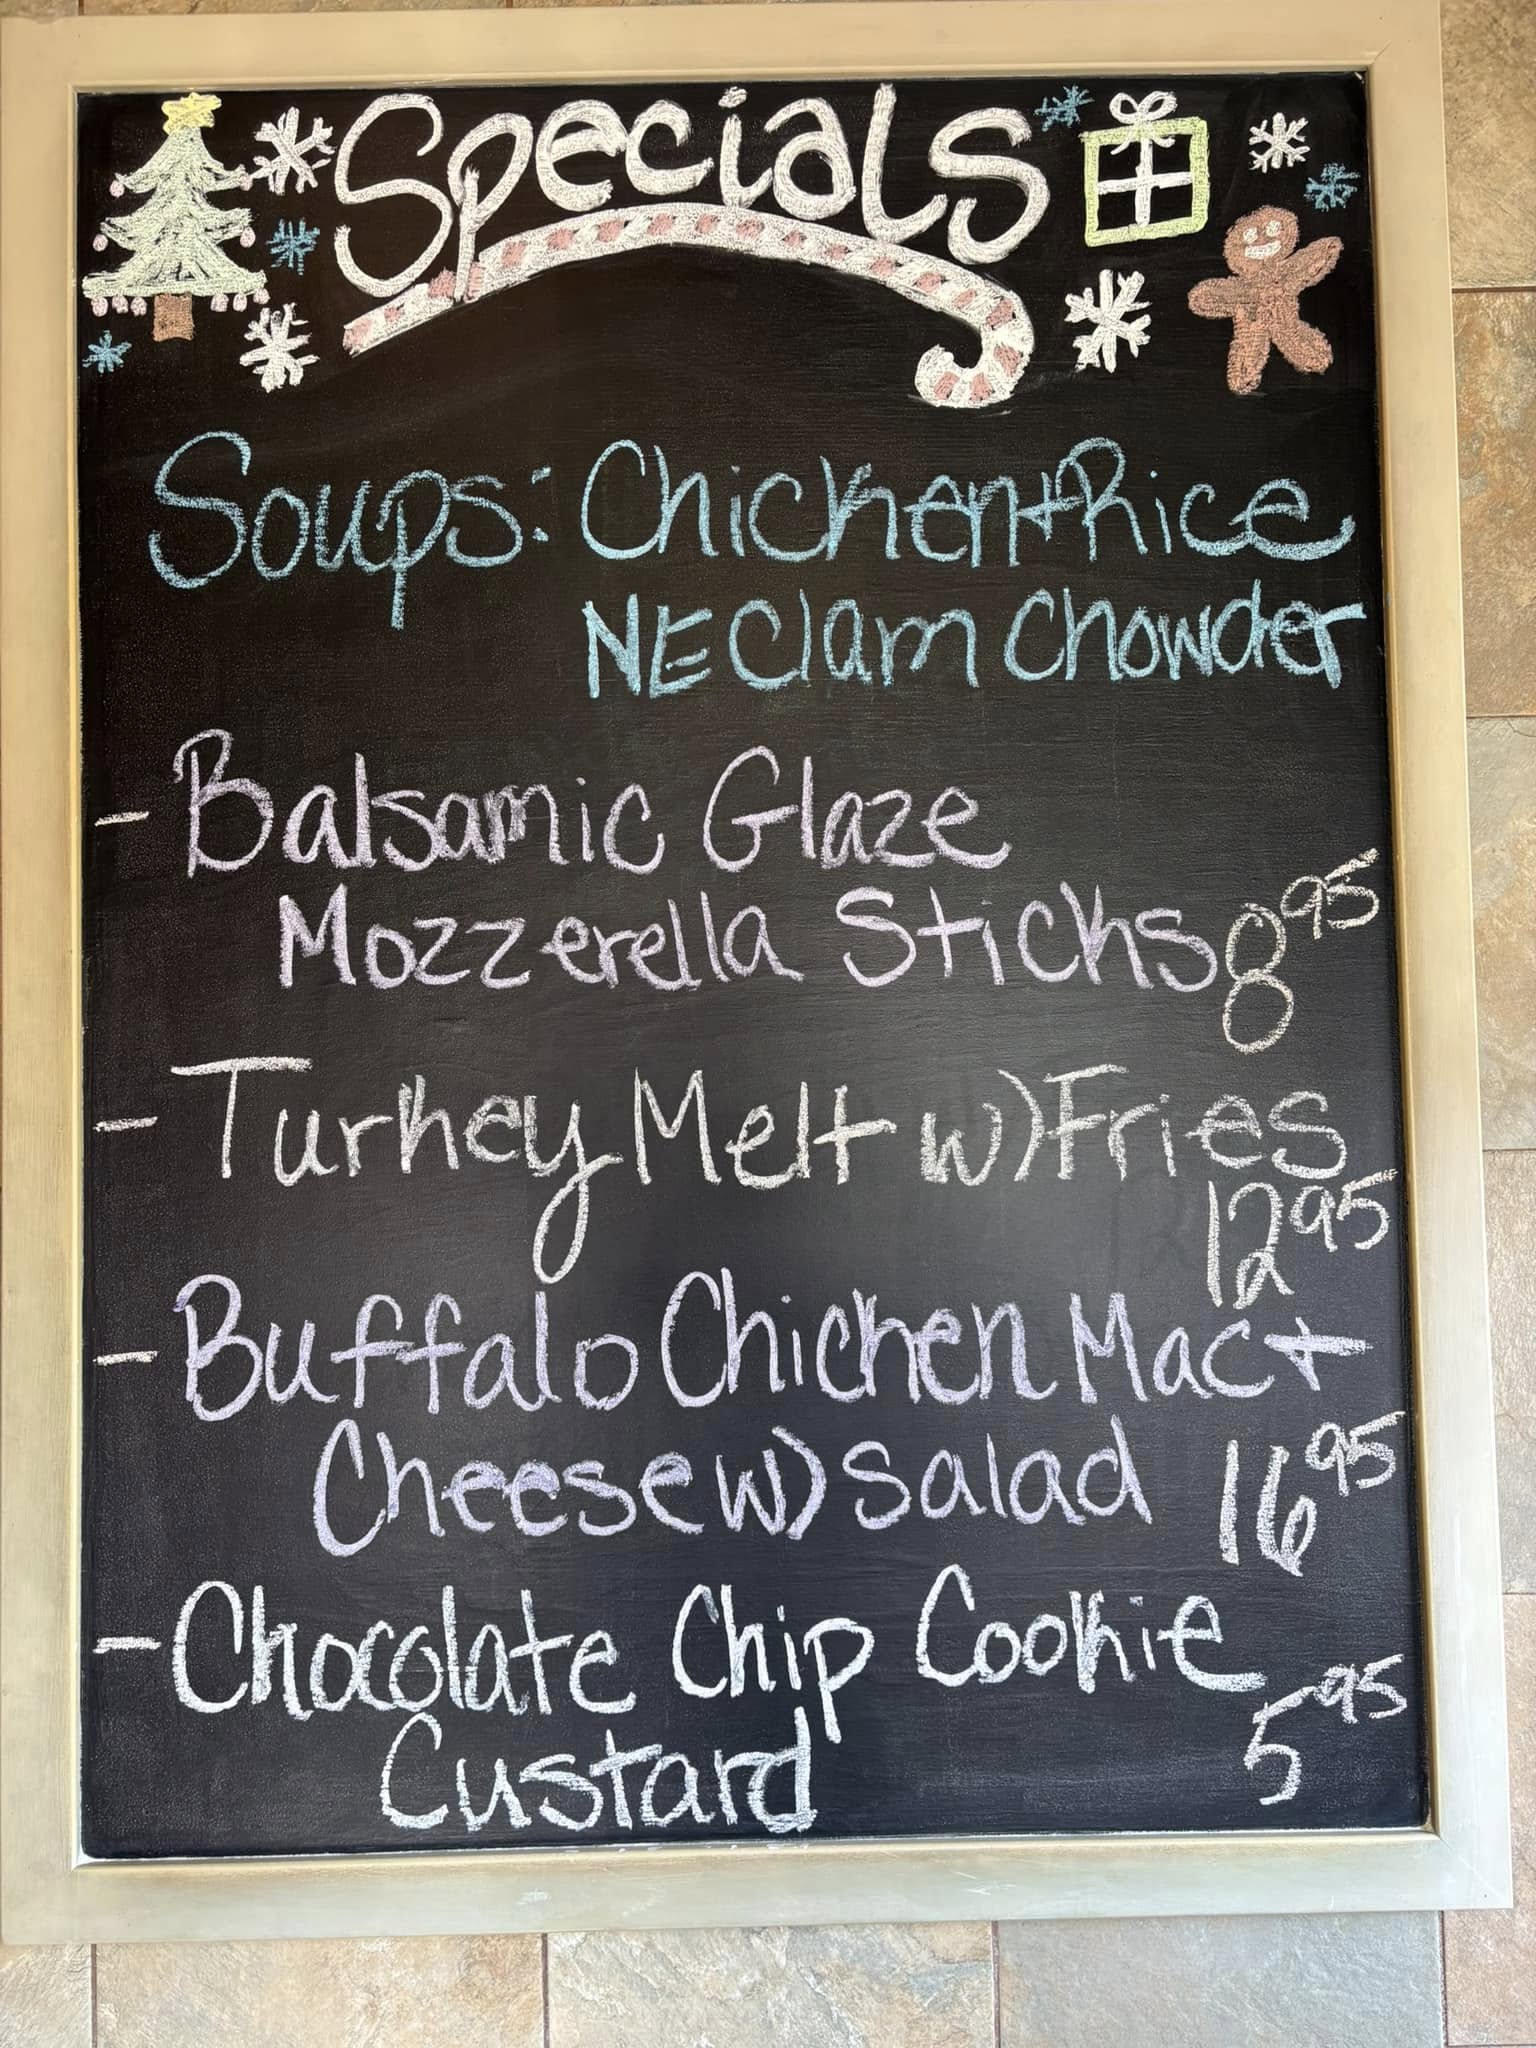 Specials
Soups: Chicken + Rice
NE Clam Chowder
- Balsamic Glaze
Mozzerella Sticks 8 95
- Turkey Melt w) Fries
12 95
- Buffalo Chicken Mac +
Cheese w) Salad 16 95
- Chocolate Chip Cookie
Custard 5 95